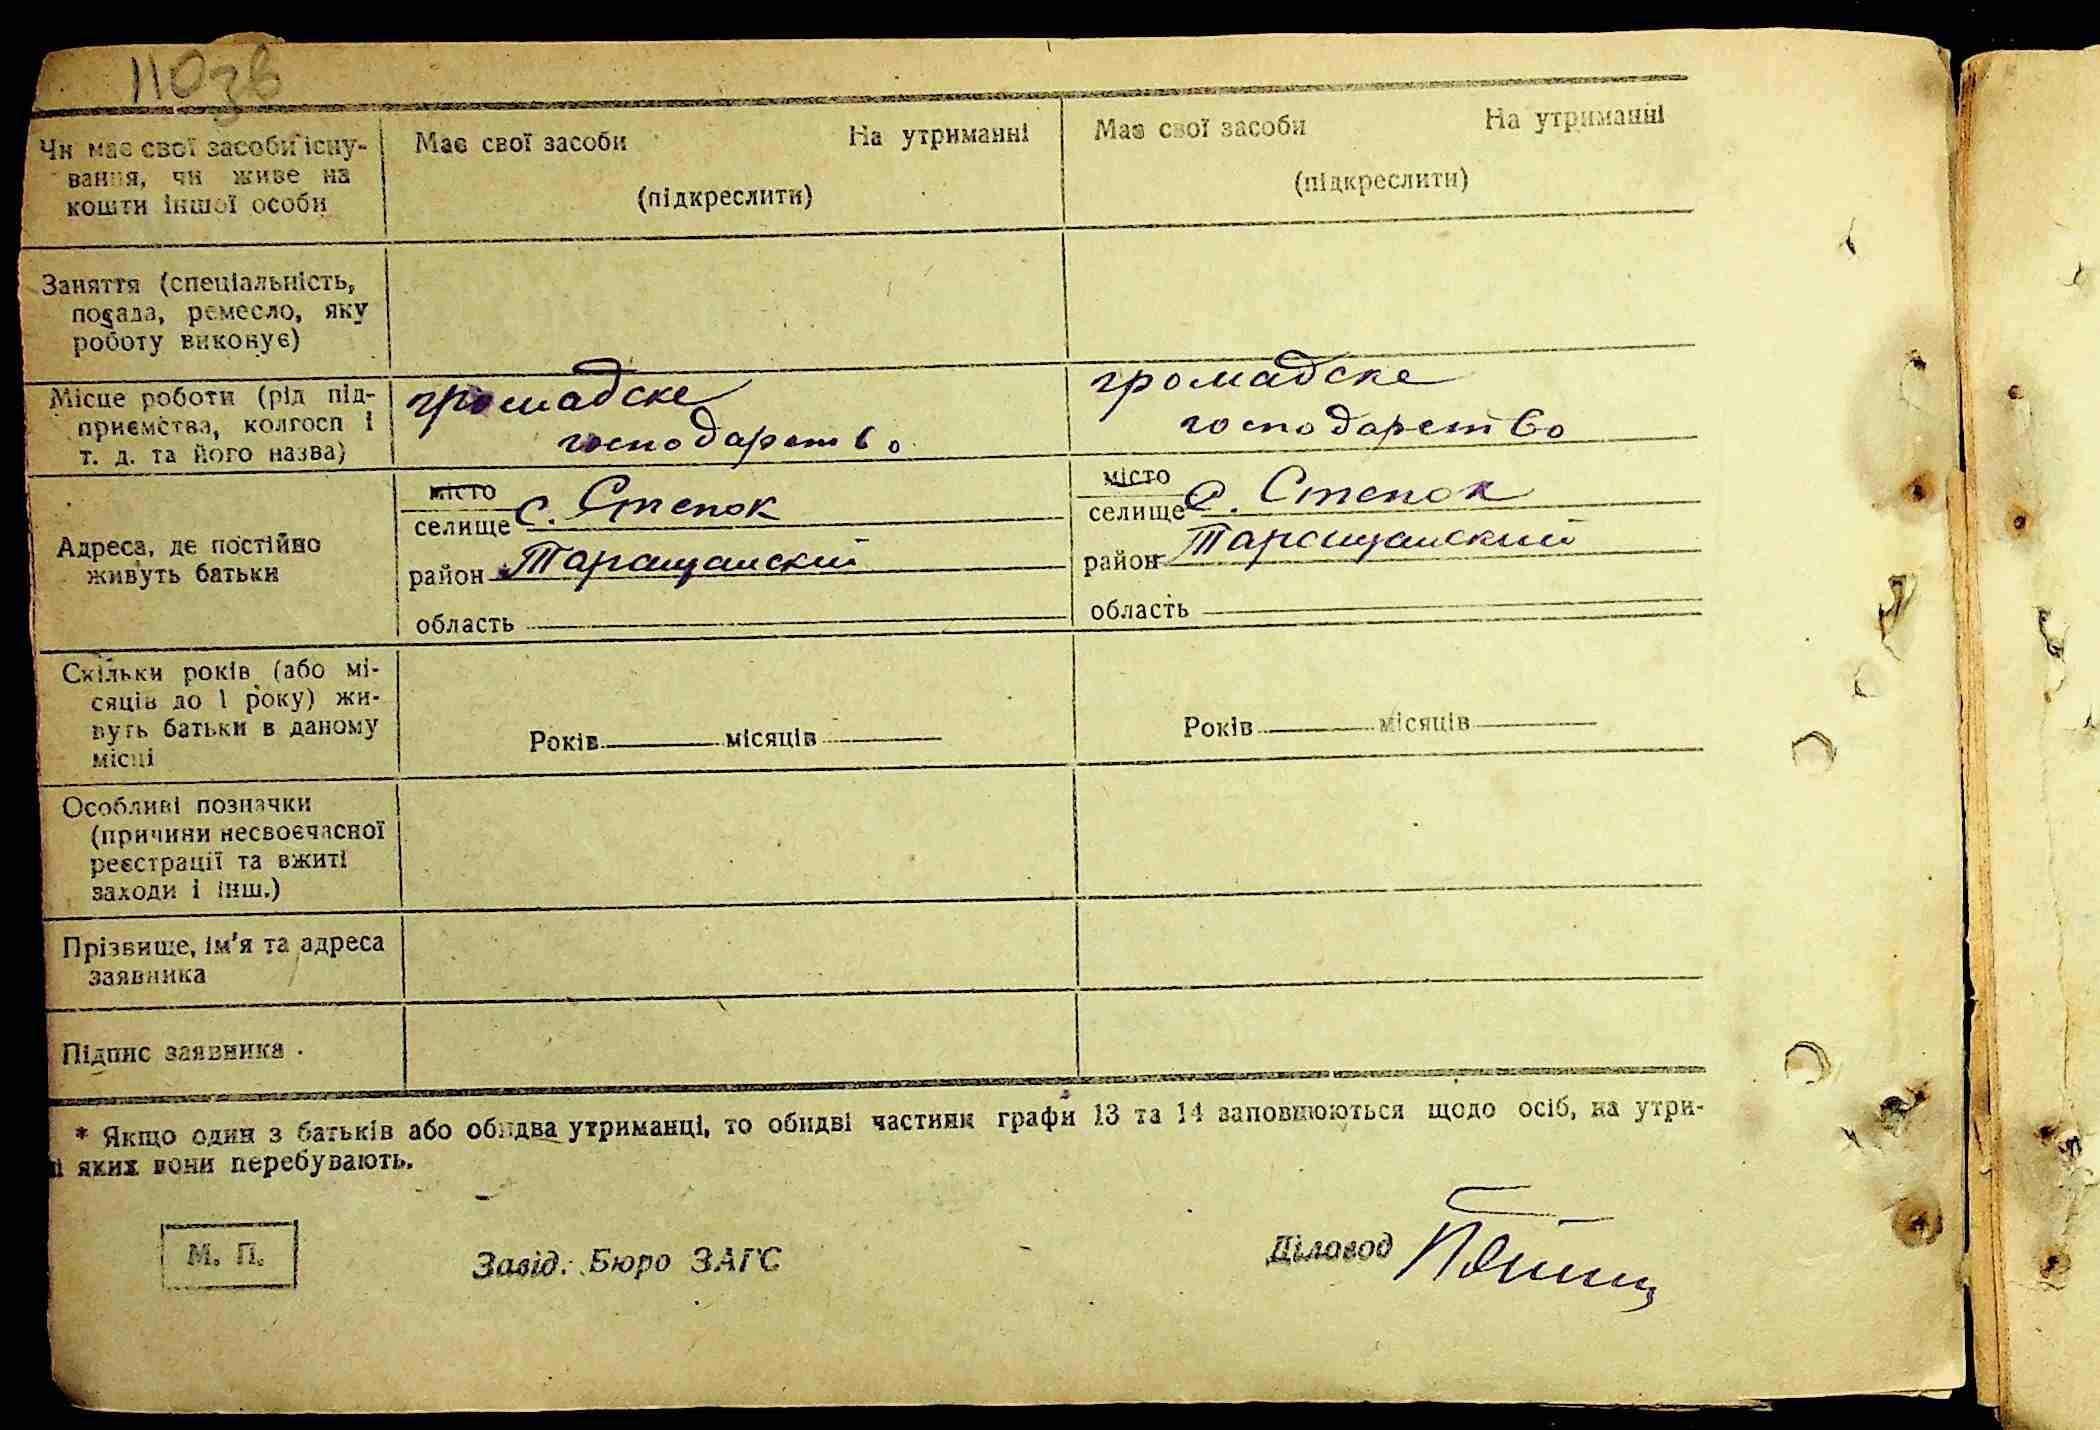 110зв
Чи має свої засоби існу- Має свої засоби На утриманні Має свої засоби На утриманні
вання, чи живе на
кошти іншої особи (підкреслити) (підкреслити)
Заняття (спеціальність,
посада, ремесло, яку
роботу виконує)
Місце роботи (рід під- громадске громадске
приємства, колгосп і господарство господарство
т. д. та його назва)
місто місто
селище с. Степок селище с. Степок
Адреса, де постійно
живуть батьки
район Таращанский район Таращанский
область область
Скільки років (або мі-
сяців до 1 року) жи-
вуть батьки в даному Років місяців Років місяців
місці
Особливі позначки
(причини несвоєчасної
реєстрації та вжиті
заходи і інш.)
Прізвище, ім'я та адреса
заявника
Підпис заявника
* Якщо один з батьків або обидва утриманці, то обидві частини графи 13 та 14 заповнюються щодо осіб, на утри-
і яких вони перебувають.
М. П. Завід. Бюро ЗАГС Діловод